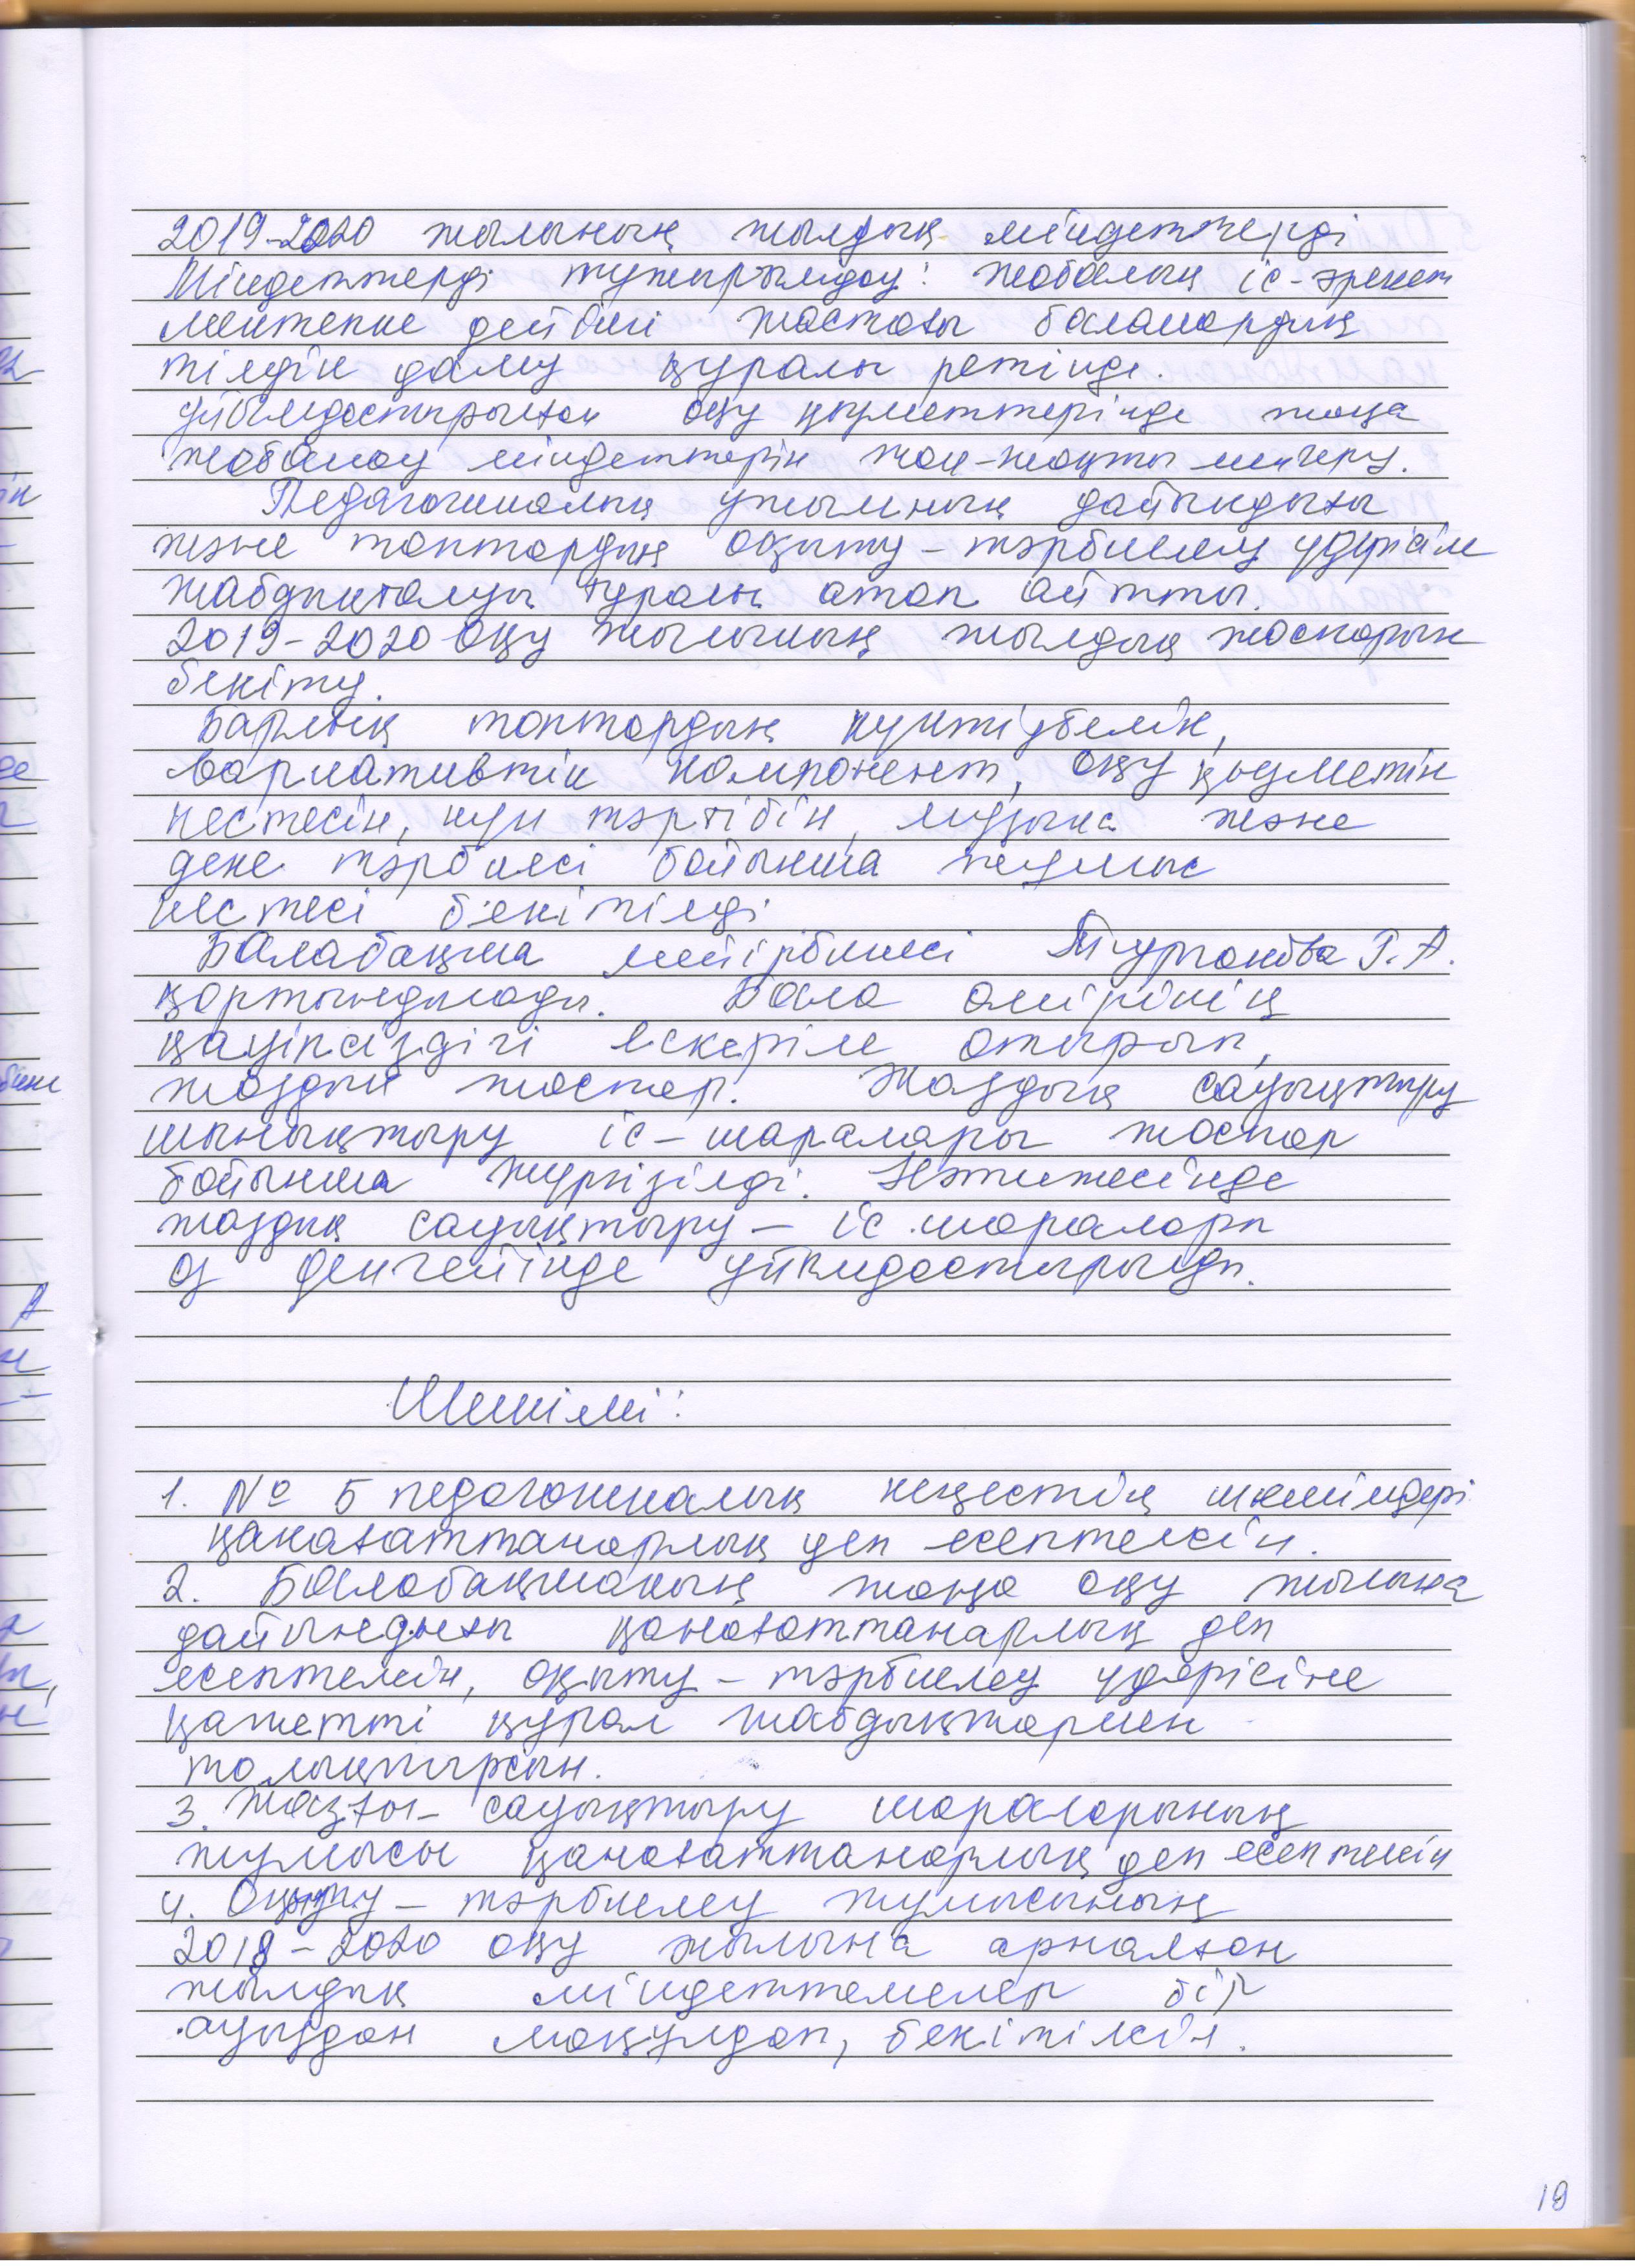 2019-2020 жылының жылдық міндеттерді
Міндеттерді тұжырымдау: жобалық іс-әрекет
мектепке дейінгі жастағы балалардың
тілдін даму құралы ретінде.
Ұйымдастырылған оқу қызметтерінде жаңа
жобалау міндеттерін жан-жақты меңгеру.
Педагогикалық ұжымның дайындығы
және топтардың оқыту-тәрбиелеу үдерісіне
жабдықталуы туралы атап айтты.
2019-2020 Оқу жылының жылдық жоспарын
бекіту.
Барлық топтардың күнтізбелік,
вариативтік компонент, оқу қызметін
кестесін, күн тәртібін, музыка және
дене тәрбиесі бойынша жұмыс
кестесі бекітілді
Балабақша мейірбикесі Г.А.
қортындылады. Бала өмірінің
қауіпсіздігі ескеріле отырып,
жаздық жоспар. Жаздық сауықтыру
шынықтыру іс-шаралары жоспар
бойынша жүргізілді. Нәтижесінде
жаздық сауықтыру- іс шаралары
өз денгейінде ұйымдастырылды.
Шешімі:
1. № 5 педагогикалық кеңестің шешімдері
қанағаттанарлық деп есептелсін.
2. Балабақшаның жаңа оқу жылына
дайындығы қанағаттанарлық деп
есептелсін, оқыту-тәрбиелеу үдерісіне
қажетті құрал жабдықтармен
толықтырсын.
3. Жазғы- сауықтыру шараларының
жұмысы қанағаттанарлық деп есептелсін
4. Оқыту- тәрбиелеу жұмысының
2018-2020 оқу жылына арналған
жылдық міндеттемелер бір
ауыздан мақұлдап, бекітілсін.
19